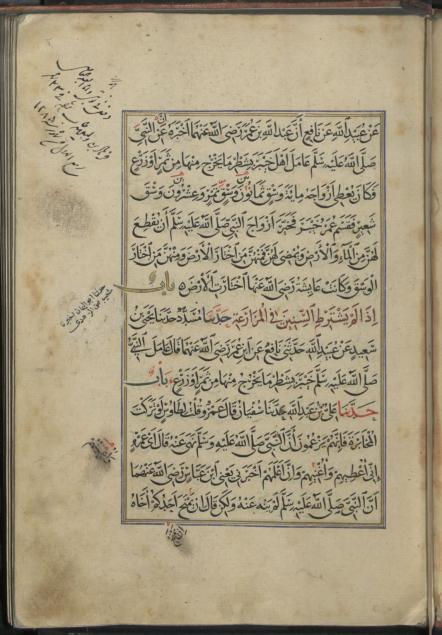 عن عبيد الله عن نافع أن عبد الله بن عمر رضى الله عنهما اخبره عن النبي
صلى الله عليه وسلم عامل اهل خيبر بشطر ما يخرج منها من ثمر او زرع
وكان يعطي ازواجه مائة وسق ثمانون وسق تمر وعشرون وسق
شعير فقسم عمر خيبر فخير ازواج النبي صلى الله عليه وسلم أن يقطع
لهن من الماء والارض او يمضى لهن فمنهن من اختار الارض ومنهن من اختار
الوسق وكانت عايشة رضى الله عنها اختارت الارض باب
اذا لم يشترط السنين فى المزارعة حدثنا مسدد حدثنا يحيى بن
سعيد عن عبيد الله حدثنى نافع عن ابن عمر رضى الله عنهما قال عامل النبي
صلى الله عليه وسلم خيبر بشطر ما يخرج منها من ثمر او زرع باب
حدثنا على بن عبد الله حدثنا سفيان قال عمرو قلت لطاوس لو تركت
المخابرة فانهم يزعمون أن النبي صلى الله عليه وسلم نهى عنه قال اي عمرو
انى اعطيهم واغنيهم وان اعلمهم اخبرنى يعنى ابن عباس رضى الله عنهما
أن النبي صلى الله عليه وسلم لم ينه عنه ولكن قال ان يمنح احدكم اخاه